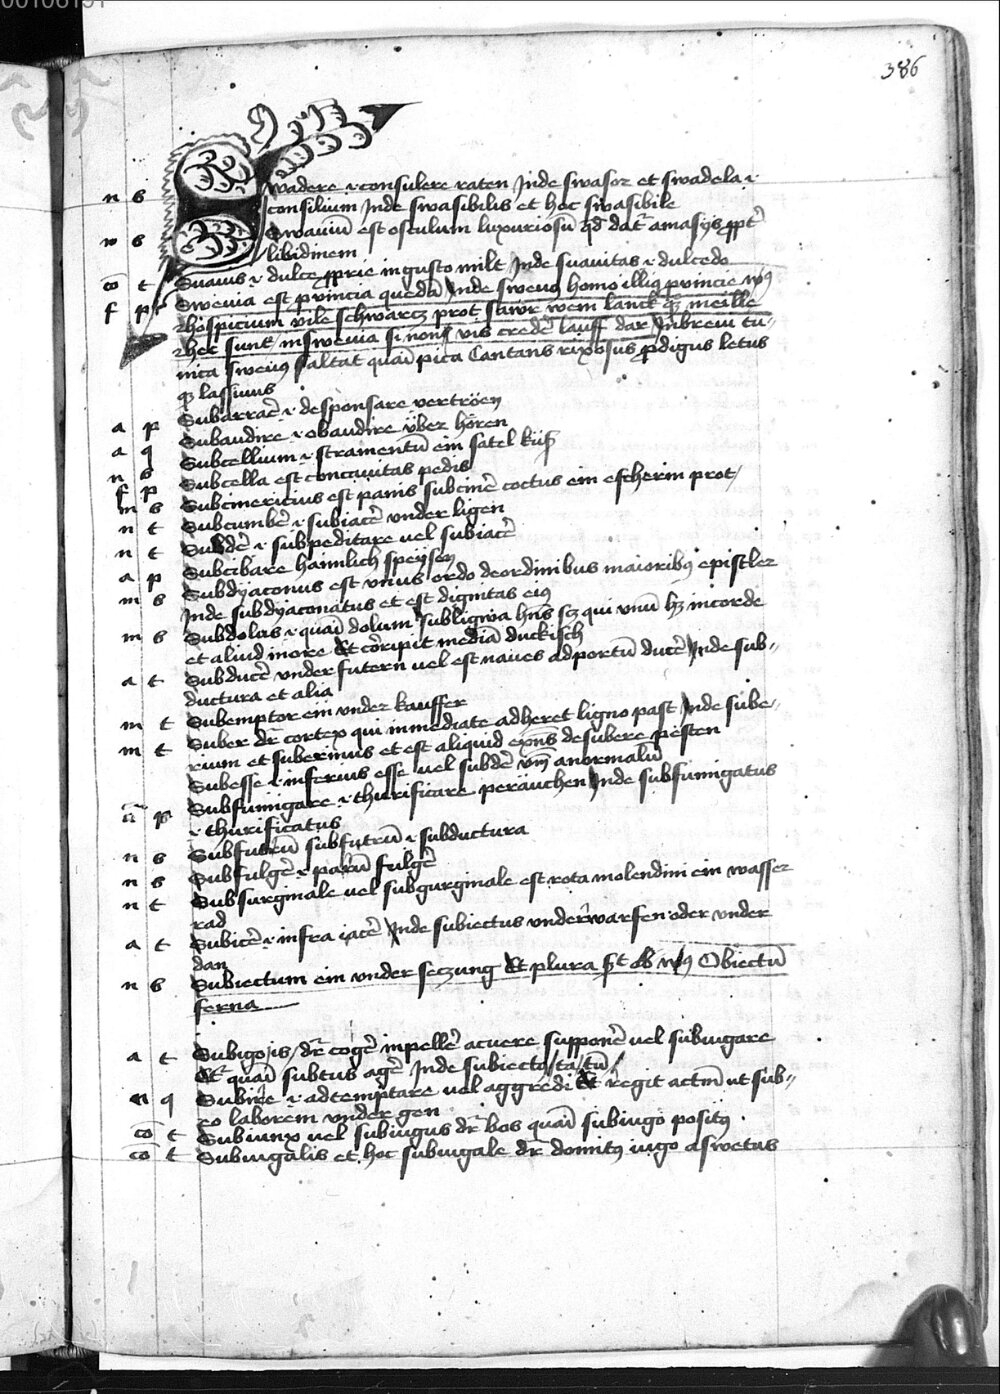 386
n s Swadere ⁊ consulere raten Inde swasor et swadela ⁊
consilium Inde swasibilis et hoc swasibile
n s Swaviū est osculum luxuriosū qd dat amasijs ꝓpt
libidinem
co t Suavis ⁊ dulce ꝓprie in gusto milt Inde suavitas ⁊ dulcedo
f p Swevia est provincia quedā Inde swevus homo illiꝰ provincie
hospicium vile schwarcz prot sawr wein lanck meille
hec sunt in swevia si non vis crede lauff dar In brevi tu-
nica swevꝰ saltat quasi pica Cantans rixosus ꝓdigus letus
lassivus
a p Subarrare ⁊ desponsare vertröen
a q Subaudire ⁊ obaudire über hören
n s Subcellium ⁊ stramentū ein satel küß
f p Subcella est concavitas pedis
m s Subcinericius est panis sub cinē coctus ein escherin prot
n t Subcumbē ⁊ subiacē under ligen
n t Subdē ⁊ subpeditare vel subiacē
a p Subcibare haimlich speysen
m s Subdyaconus est unus ordo de ordinibus maioribꝰ epistler
Inde subdyaconatus et est dignitas eiꝰ
m s Subdolus ⁊ quasi dolum sub ligwa hns sz qui unū hz in corde
et aliud in ore Et corripit mediā duckisch
a t Subducē under futern vel est naves ad portū ducē Inde sub-
ductura et alia
m t Subemptor ein under kauffer
m t Suber dr cortex qui inmediate adheret ligno past Inde sube-
rium et suberinus et est aliquid exns de subere pesten
Subesse ⁊ inferius esse vel subdē anormalū
a p Subfumigare ⁊ thurificare peräuchen Inde subfumigatus
⁊ thurificatus
n s Subfutrū subfutrū ⁊ subductura
n s Subfulgē ⁊ parū fulgē
n t Subsurginale vel subgurginale est rota molendini ein wasser
rad
a t Subicē ⁊ infra iacē Inde subiectus underwarfen oder under
dan
n s Subiectum ein under seczung Et plura Obiectū
ferna
a t Subigo is dr cogē inpellē acuere supponē vel subiugare
Et quasi subtus agē Inde subiecto ta tū
n q Subire ⁊ adtemptare vel aggredi Et regit actm ut sub-
eo laborem under gen
co t Subiunx vel subiugus dr bos quasi sub iugo positꝰ
co t Subiugalis et hoc subiugale dr domitꝰ iugo aswetus